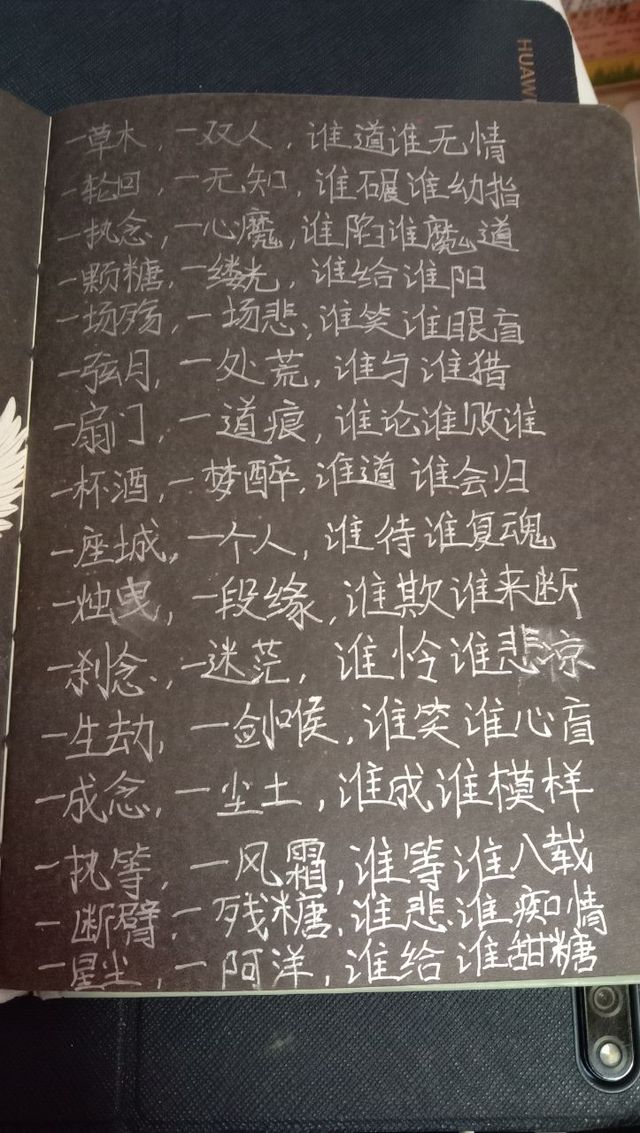 HUAW
一草木，一双人，谁道谁无情
一轮回，一无知，谁碾谁幼指
一执念，一心魔，谁陷谁魔道
一颗糖，一缕光，谁给谁阳
一场殇，一场悲，谁笑谁眼盲
一弦月，一处荒，谁与谁猎
一扇门，一道痕，谁论谁败谁
一杯酒，一梦醉，谁道谁会归
一座城，一个人，谁待谁复魂
一烛曳，一段缘，谁欺谁来断
一刹念，一迷茫，谁怜谁悲凉
一生劫，一剑喉，谁笑谁心盲
一成念，一尘土，谁成谁模样
一执等，一风霜，谁等谁八载
一断臂，一残糖，谁悲谁痴情
一星尘，一阿洋，谁给谁甜糖